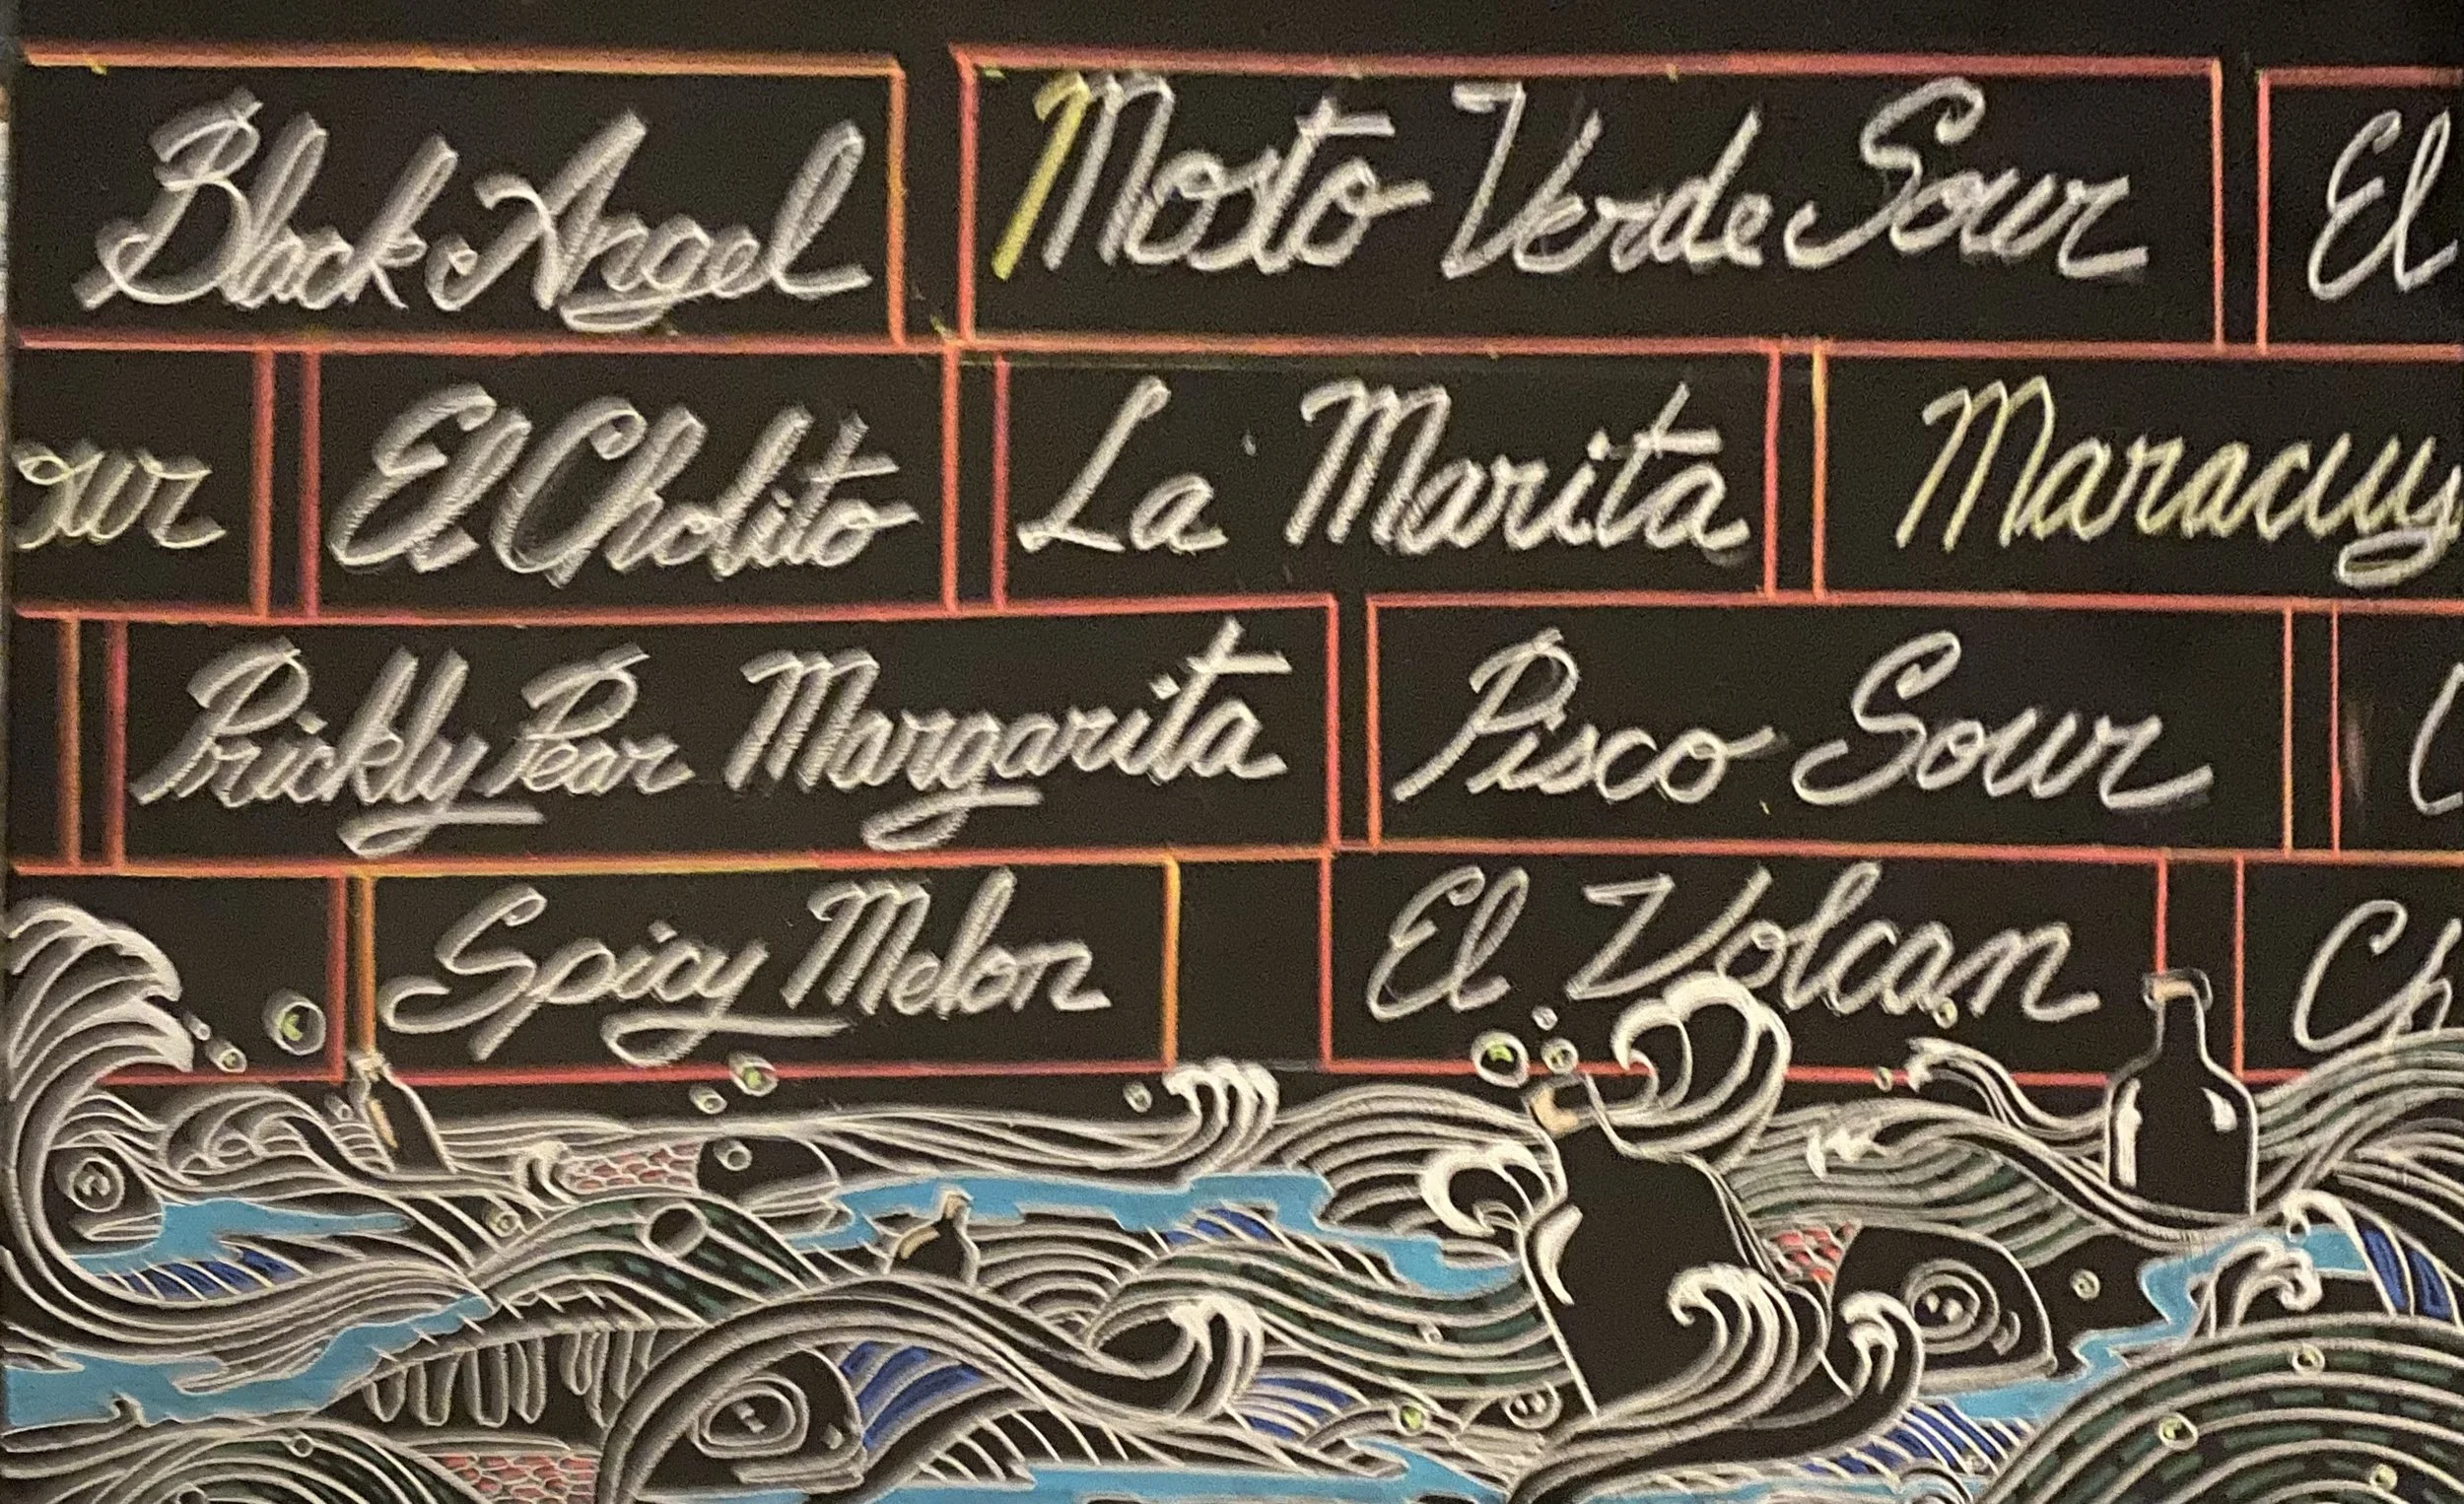 Black Angel Mosto Verde Sour El
our El Cholito La Marita Maracuy
Prickly Pear Margarita Pisco Sour
Spicy Melon El Volcan Ch